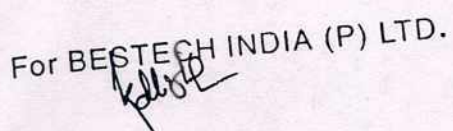 For BESTECH INDIA (P) LTD.